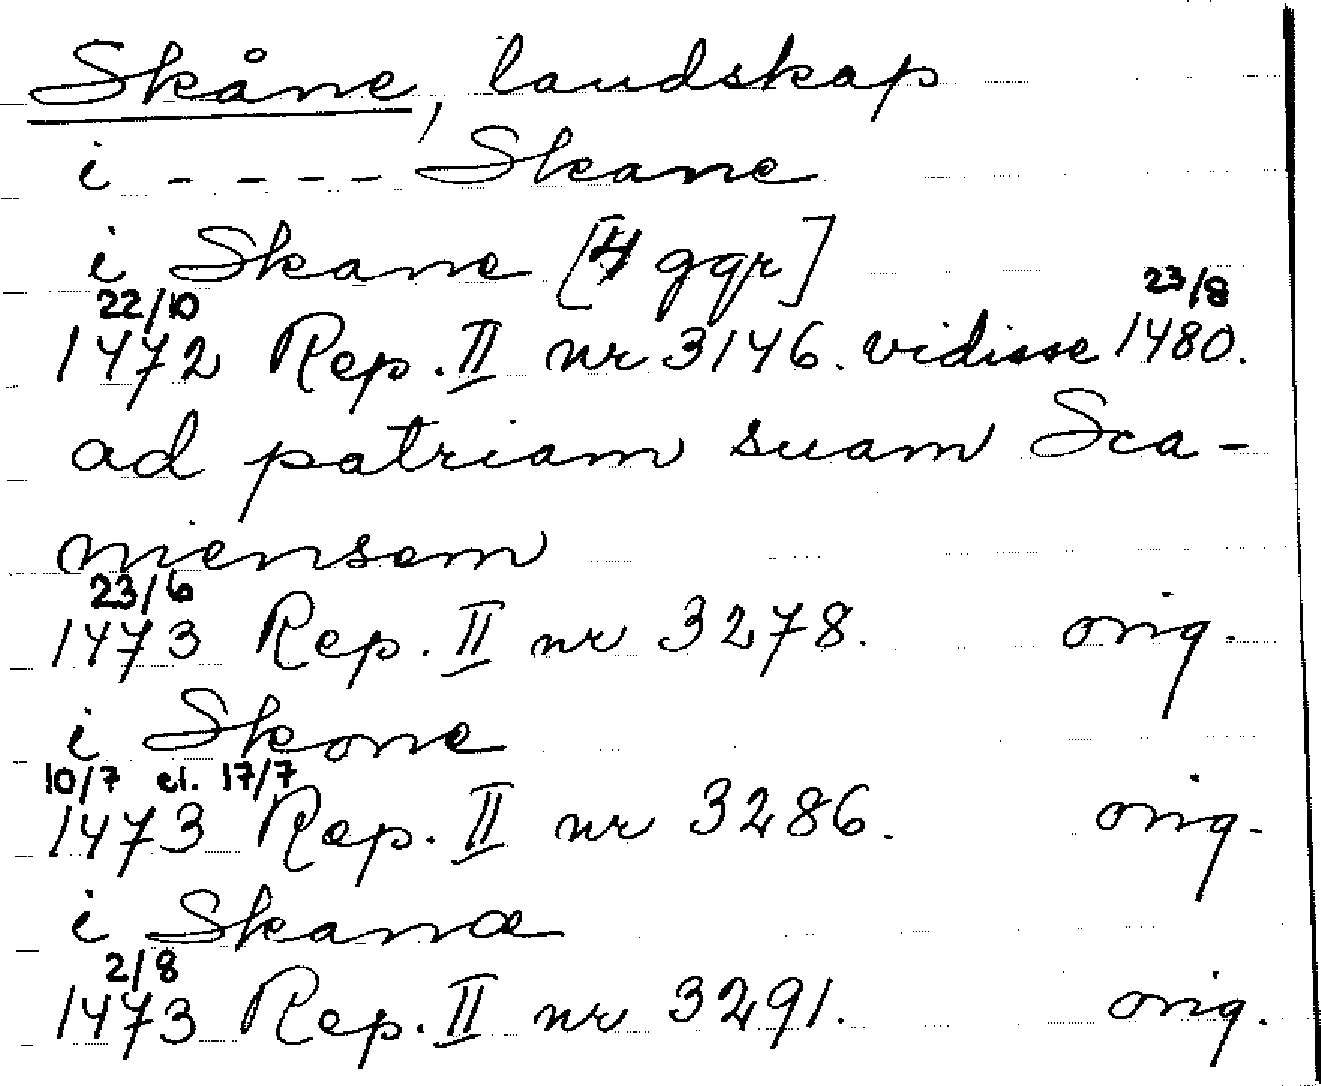 Skåne, landskap
i - - - - Skane
i Skane [4 ggr]
22/10 23/8
1472 Rep. II nr 3146. vidisse 1480.
ad patriam suam Sca-
niensem
23/6
1473 Rep. II nr 3278. orig.
i Skone
10/7 el. 17/7
1473 Rep. II nr 3286. orig.
i Skanæ
2/8
1473 Rep. II nr 3291. orig.